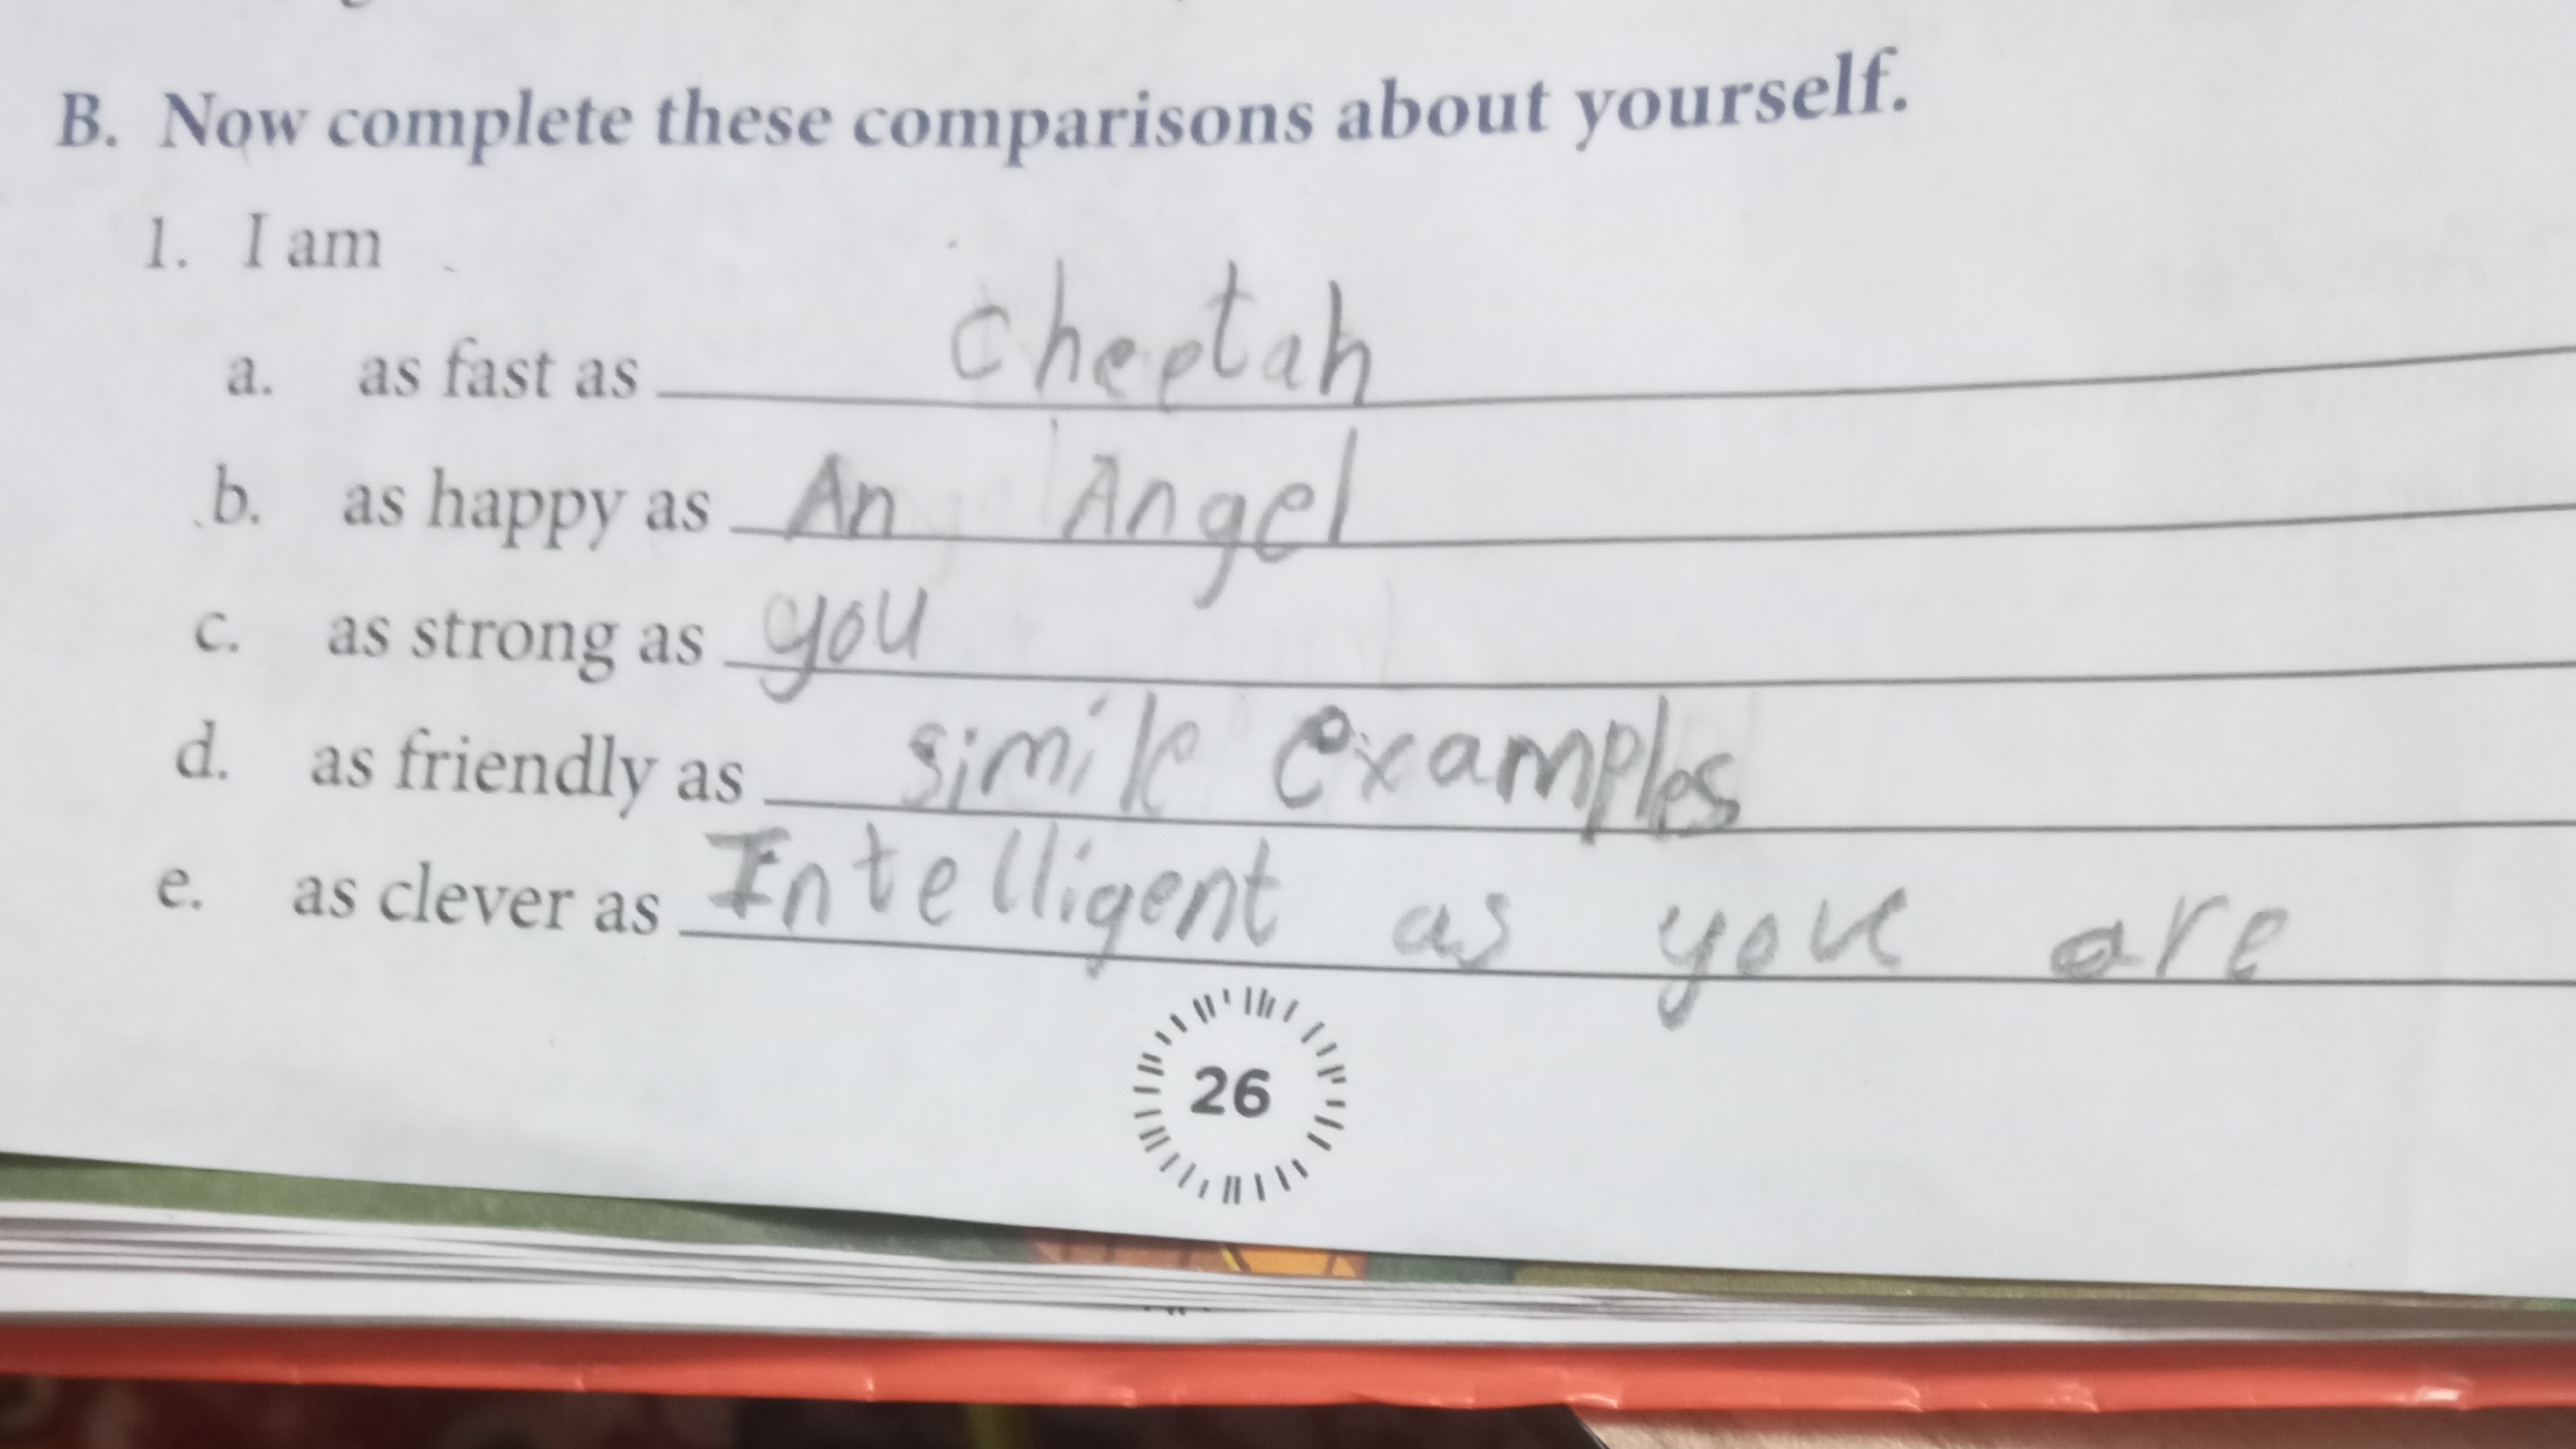 B. Now complete these comparisons about yourself.
1. I am
a. as fast as cheetah
b. as happy as An Angel
c. as strong as you
d. as friendly as simile examples
e. as clever as Intelligent as you are
26